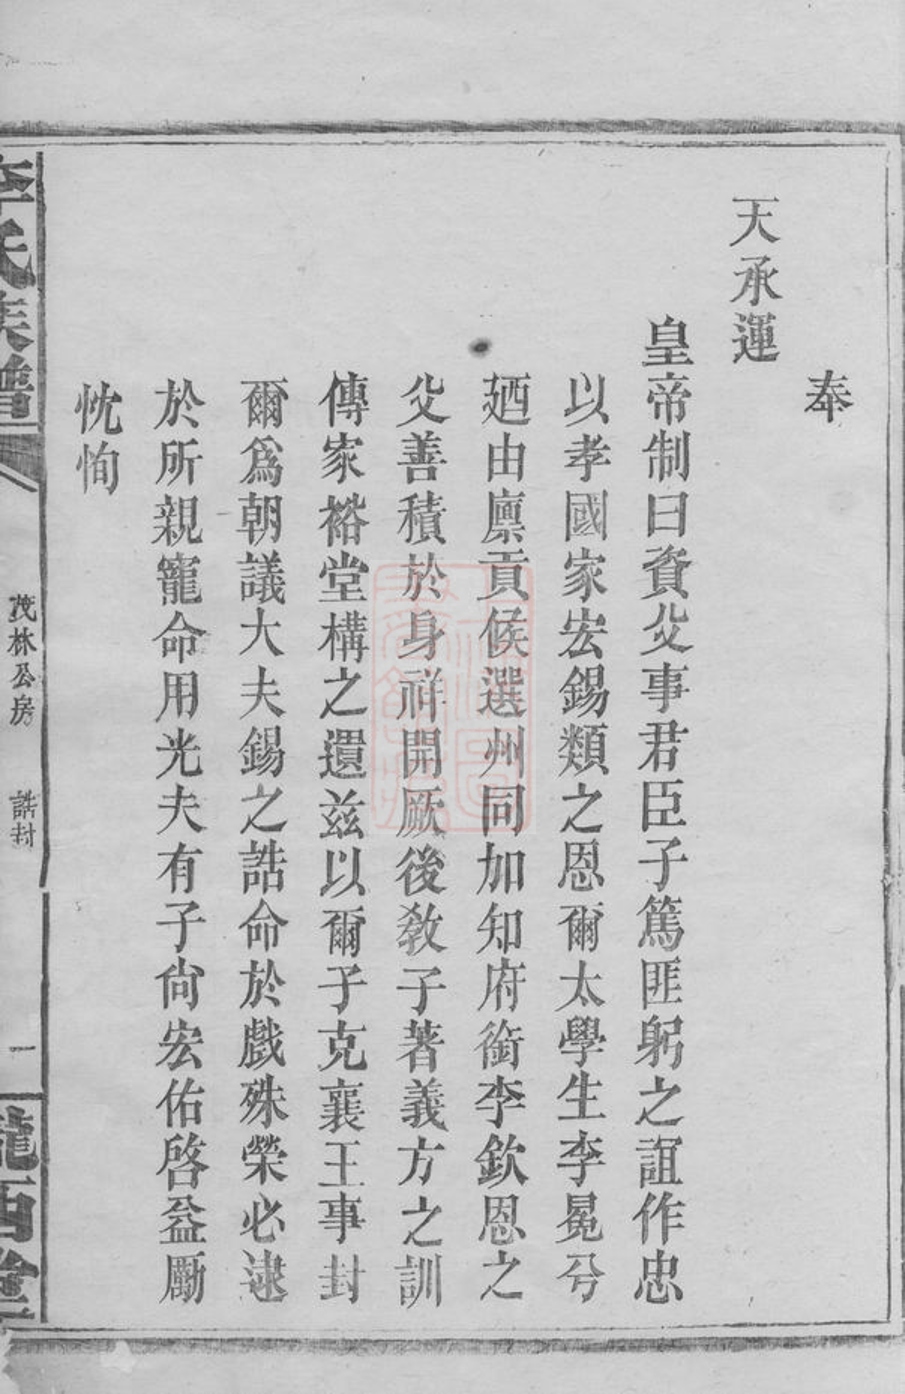 奉
天承運
皇帝制曰資父事君臣子篤匪躬之誼作忠
以孝國家宏錫類之恩爾太學生李冕兮
廼由廩貢候選州同加知府銜李欽恩之
父善積於身祥開厥後敎子著義方之訓
傳家裕堂構之遺兹以爾子克襄王事封
爾爲朝議大夫錫之誥命於戲殊榮必逮
於所親寵命用光夫有子尙宏佑啓益勵
忱恂
李氏族譜
茂林公房
誥封
一
隴西堂